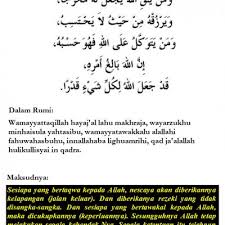 وَيَرْزُقْهُ مِنْ حَيْثُ لَا يَحْتَسِبُ،
وَمَنْ يَتَوَكَّلْ عَلَى اللَّهِ فَهُوَ حَسْبُهُ،
إِنَّ اللَّهَ بَالِغُ أَمْرِهِ،
قَدْ جَعَلَ اللَّهُ لِكُلِّ شَيْءٍ قَدْرًا.
Dalam Rumi:
Wamayyattaqillah hayaj'al lahu makhraja, wayarzukhu
minhaisula yahtasibu, wamayyatawakkalu alallahi
fahuwahasbuhu, innallahaba lighuamrihi, qad ja'alallah
hulikullisyai in qadra.
Maksudnya:
Sesiapa yang bertaqwa kepada Allah, nescaya akan diberikannya
kelapangan (jalan keluar). Dan diberikanya rezeki yang tidak
disangka-sangka. Dan sesiapa yang bertawakal kepada Allah,
maka dicukupkannya (keperluannya). Sesungguhnya Allah tetap